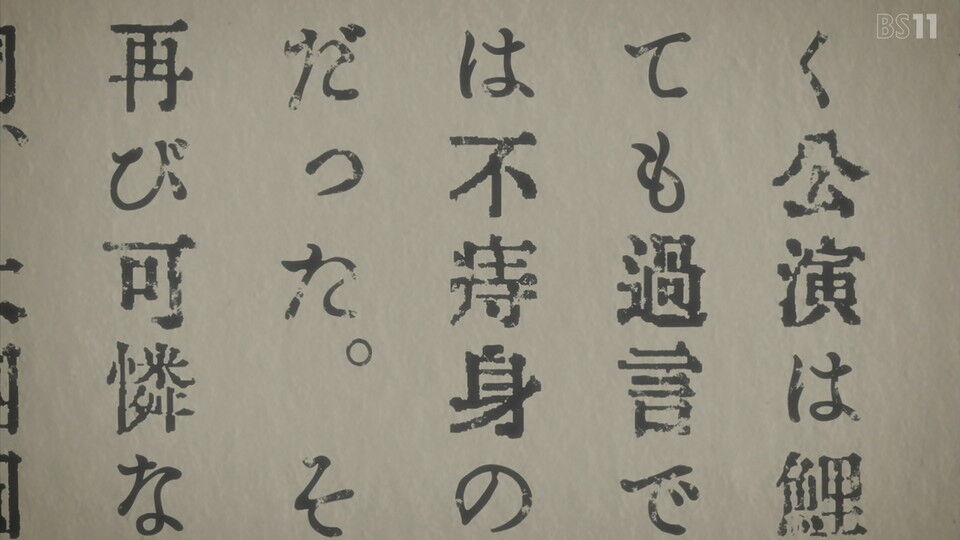 BS11
く公演は鯉
ても過言で
は不痔身の
だった。そ
再び可憐な